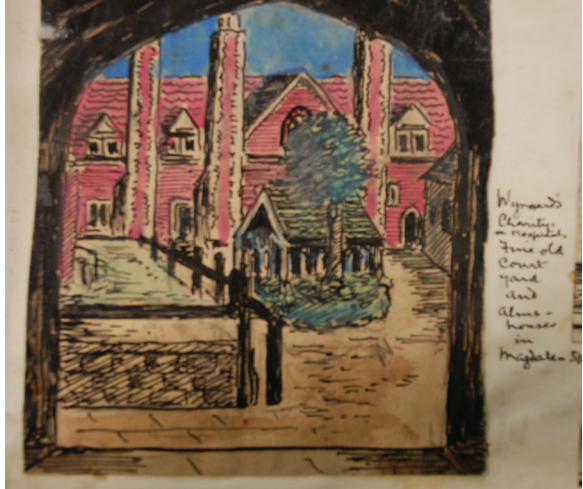 Wynard's
Charity.
or Hospital.
Fine old
Court
yard
and
Alms-
houses
in
Magdalen